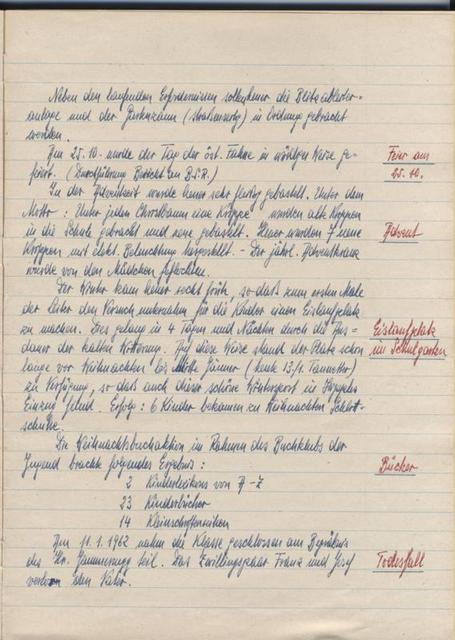 Neben den laufenden Erfordernissen sollen heuer die Blitzableiter-
anlage und der Parkzaun (straßenseitig) in Ordnung gebracht
werden.
Am 25.10. wurde der Tag der öst. Fahne in würdiger Weise ge-
feiert. (Durchführung Bericht an B.S.R.)
Feier am
25. 10.
In der Adventzeit wurde heuer sehr fleißig gebastelt. Unter dem
Motto: Unter jeden Christbaum eine Krippe wurden alte Krippen
in die Schule gebracht und neu gebastelt. Heuer wurden 7 neue
Krippen mit elekt. Beleuchtung hergestellt. - Der jährl. Adventkranz
wurde von den Mädchen geflochten.
Advent
Der Winter kam heuer recht früh, so daß zum ersten Male
der Leiter den Versuch unternahm für die Kinder einen Eislaufplatz
zu machen. Dies gelang in 4 Tagen und Nächten durch die Aus-
dauer der kalten Witterung. Auf diese Weise stand der Platz schon
lange vor Weihnachten bis Mitte Jänner (heute 13./1. Tauwetter)
zu Verfügung, so daß auch dieser schöne Wintersport in
Einzug hielt. Erfolg: 6 Kinder bekamen zu Weihnachten Schlitt-
schuhe.
Eislaufplatz
im Schulgarten
Die Weihnachtsbuchaktion im Rahmen des Buchklubs der
Jugend brachte folgendes Ergebnis:
Bücher
2 Kinderlexikons von A-Z
23 Kinderbücher
14 Kleinschriftenreihen
Am 11. 1. 1962 nahm die Klasse geschlossen am Begräbnis
des Hr. teil. Das Zwillingspaar Franz und Josef
verloren den Vater.
Todesfall